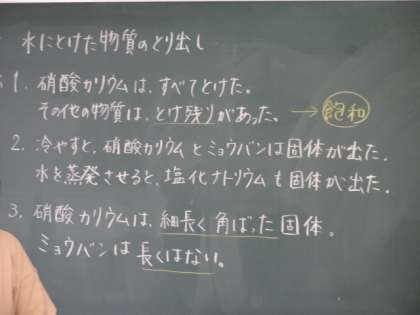 水にとけた物質のとり出し
1. 硝酸カリウムは、すべてとけた。
その他の物質は、とけ残りがあった。→飽和
2. 冷やすと、硝酸カリウムとミョウバンは固体が出た.
水を蒸発させると、塩化ナトリウムも固体が出た.
3. 硝酸カリウムは、細長く角ばった固体。
ミョウバンは長くはない。